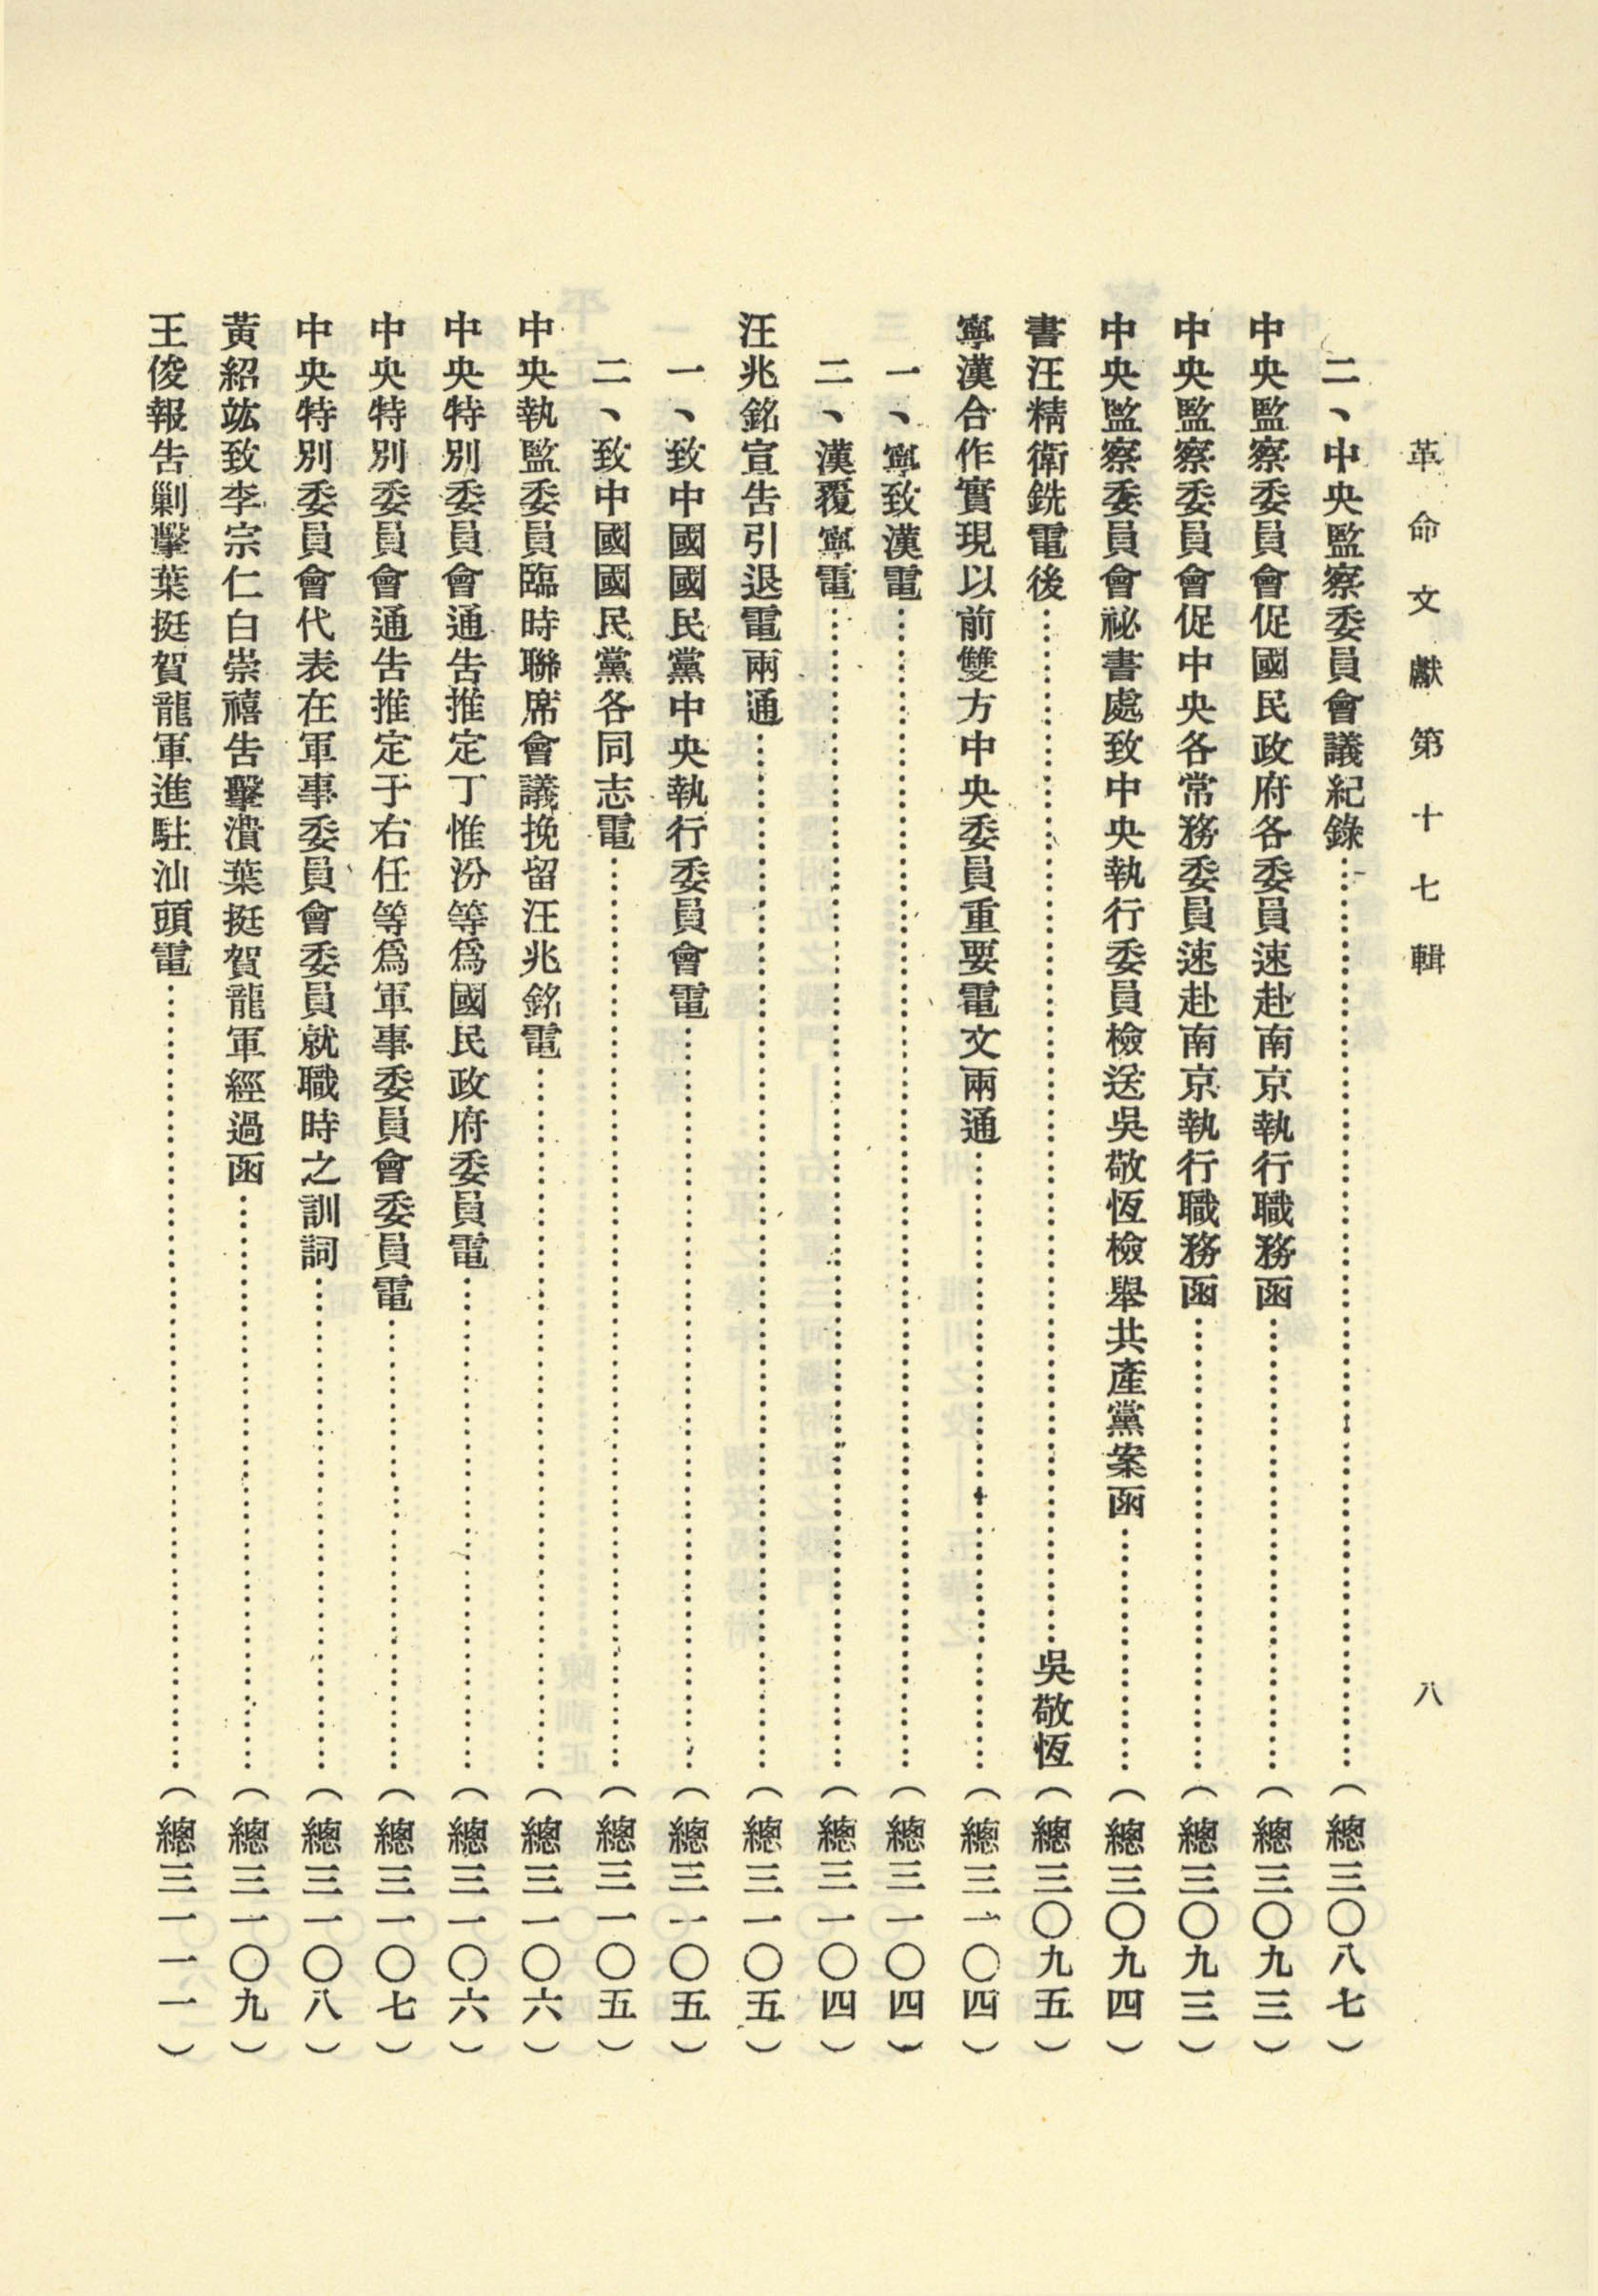 革命文獻第十七輯 八
二、中央監察委員會議紀錄……………………（總三〇八七）
中央監察委員會促國民政府各委員速赴南京執行職務函……………………（總三〇九三）
中央監察委員會促中央各常務委員速赴南京執行職務函……………………（總三〇九三）
中央監察委員會祕書處致中央執行委員檢送吳敬恆檢舉共產黨案函……………………（總三〇九四）
書汪精衛銑電後……………………吳敬恆（總三〇九五）
寧漢合作實現以前雙方中央委員重要電文兩通……………………（總三一〇四）
一、寧致漢電……………………（總三一〇四）
二、漢覆寧電……………………（總三一〇四）
汪兆銘宣告引退電兩通……………………（總三一〇五）
一、致中國國民黨中央執行委員會電……………………（總三一〇五）
二、致中國國民黨各同志電……………………（總三一〇五）
中央執監委員臨時聯席會議挽留汪兆銘電……………………（總三一〇六）
中央特別委員會通告推定丁惟汾等為國民政府委員電……………………（總三一〇六）
中央特別委員會通告推定于右任等為軍事委員會委員電……………………（總三一〇七）
中央特別委員會代表在軍事委員會委員就職時之訓詞……………………（總三一〇八）
黃紹竑致李宗仁白崇禧告擊潰葉挺賀龍軍經過函……………………（總三一〇九）
王俊報告剿擊葉挺賀龍軍進駐汕頭電……………………（總三一一一）